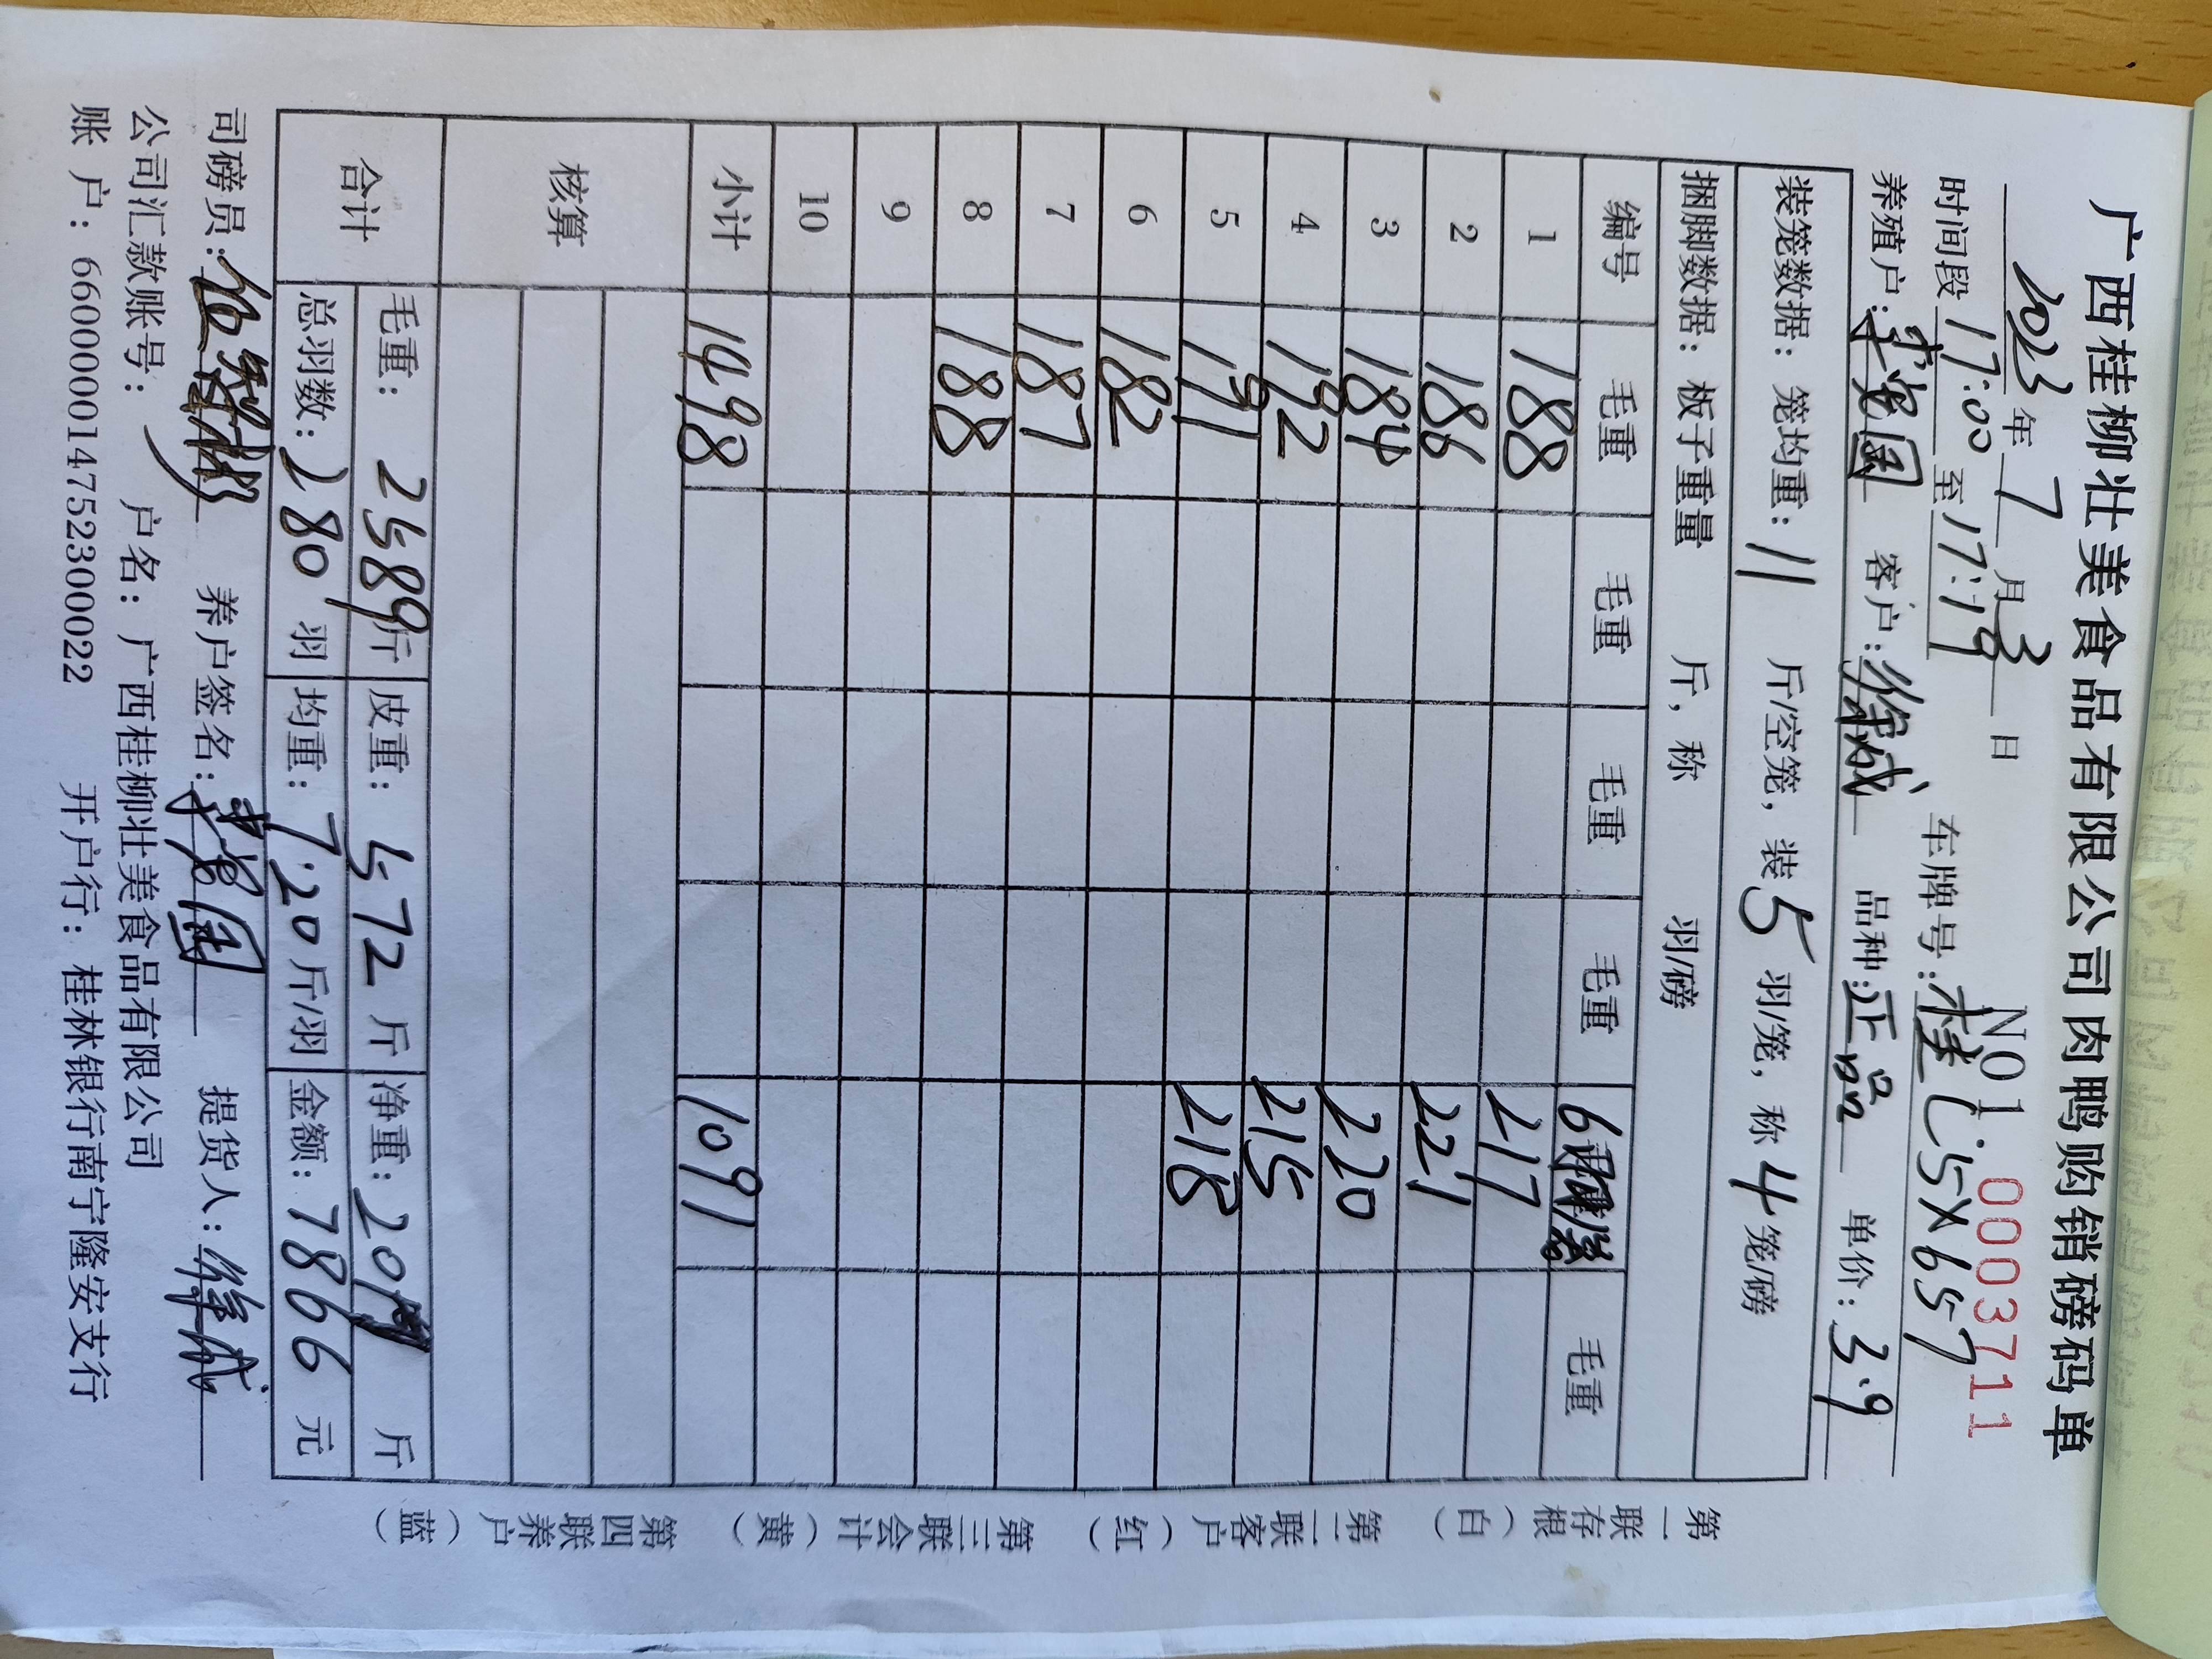 广西桂柳壮美食品有限公司肉鸭购销磅码单
2023年7月3日 N01 0003711
时间段17:00至17:19 车牌号:桂L·5X657
养殖户:党国 客户:徐成 品种:正品 单价:3.9
装笼数据：笼均重：11 斤/空笼，装5羽/笼，称4笼/磅
捆脚数据：板子重量 斤，称 羽/磅
编号 毛重 毛重 毛重 毛重 6 毛重
1 188 217
2 186 221
3 184 220
4 192 215
5 191 218
6 182
7 187
8 188
9
10
小计 1498 1091
核算
合计 毛重：2589斤 皮重：572斤 净重：2017斤
总羽数：280羽 均重：7.20斤/羽 金额：7866元
司磅员: 养户签名:党国 提货人:徐成
公司汇款账号： 户名：广西桂柳壮美食品有限公司
账 户：660000014752300022 开户行：桂林银行南宁隆安支行
第一联存根（白） 第二联客户（红） 第三联会计（黄） 第四联养户（蓝）